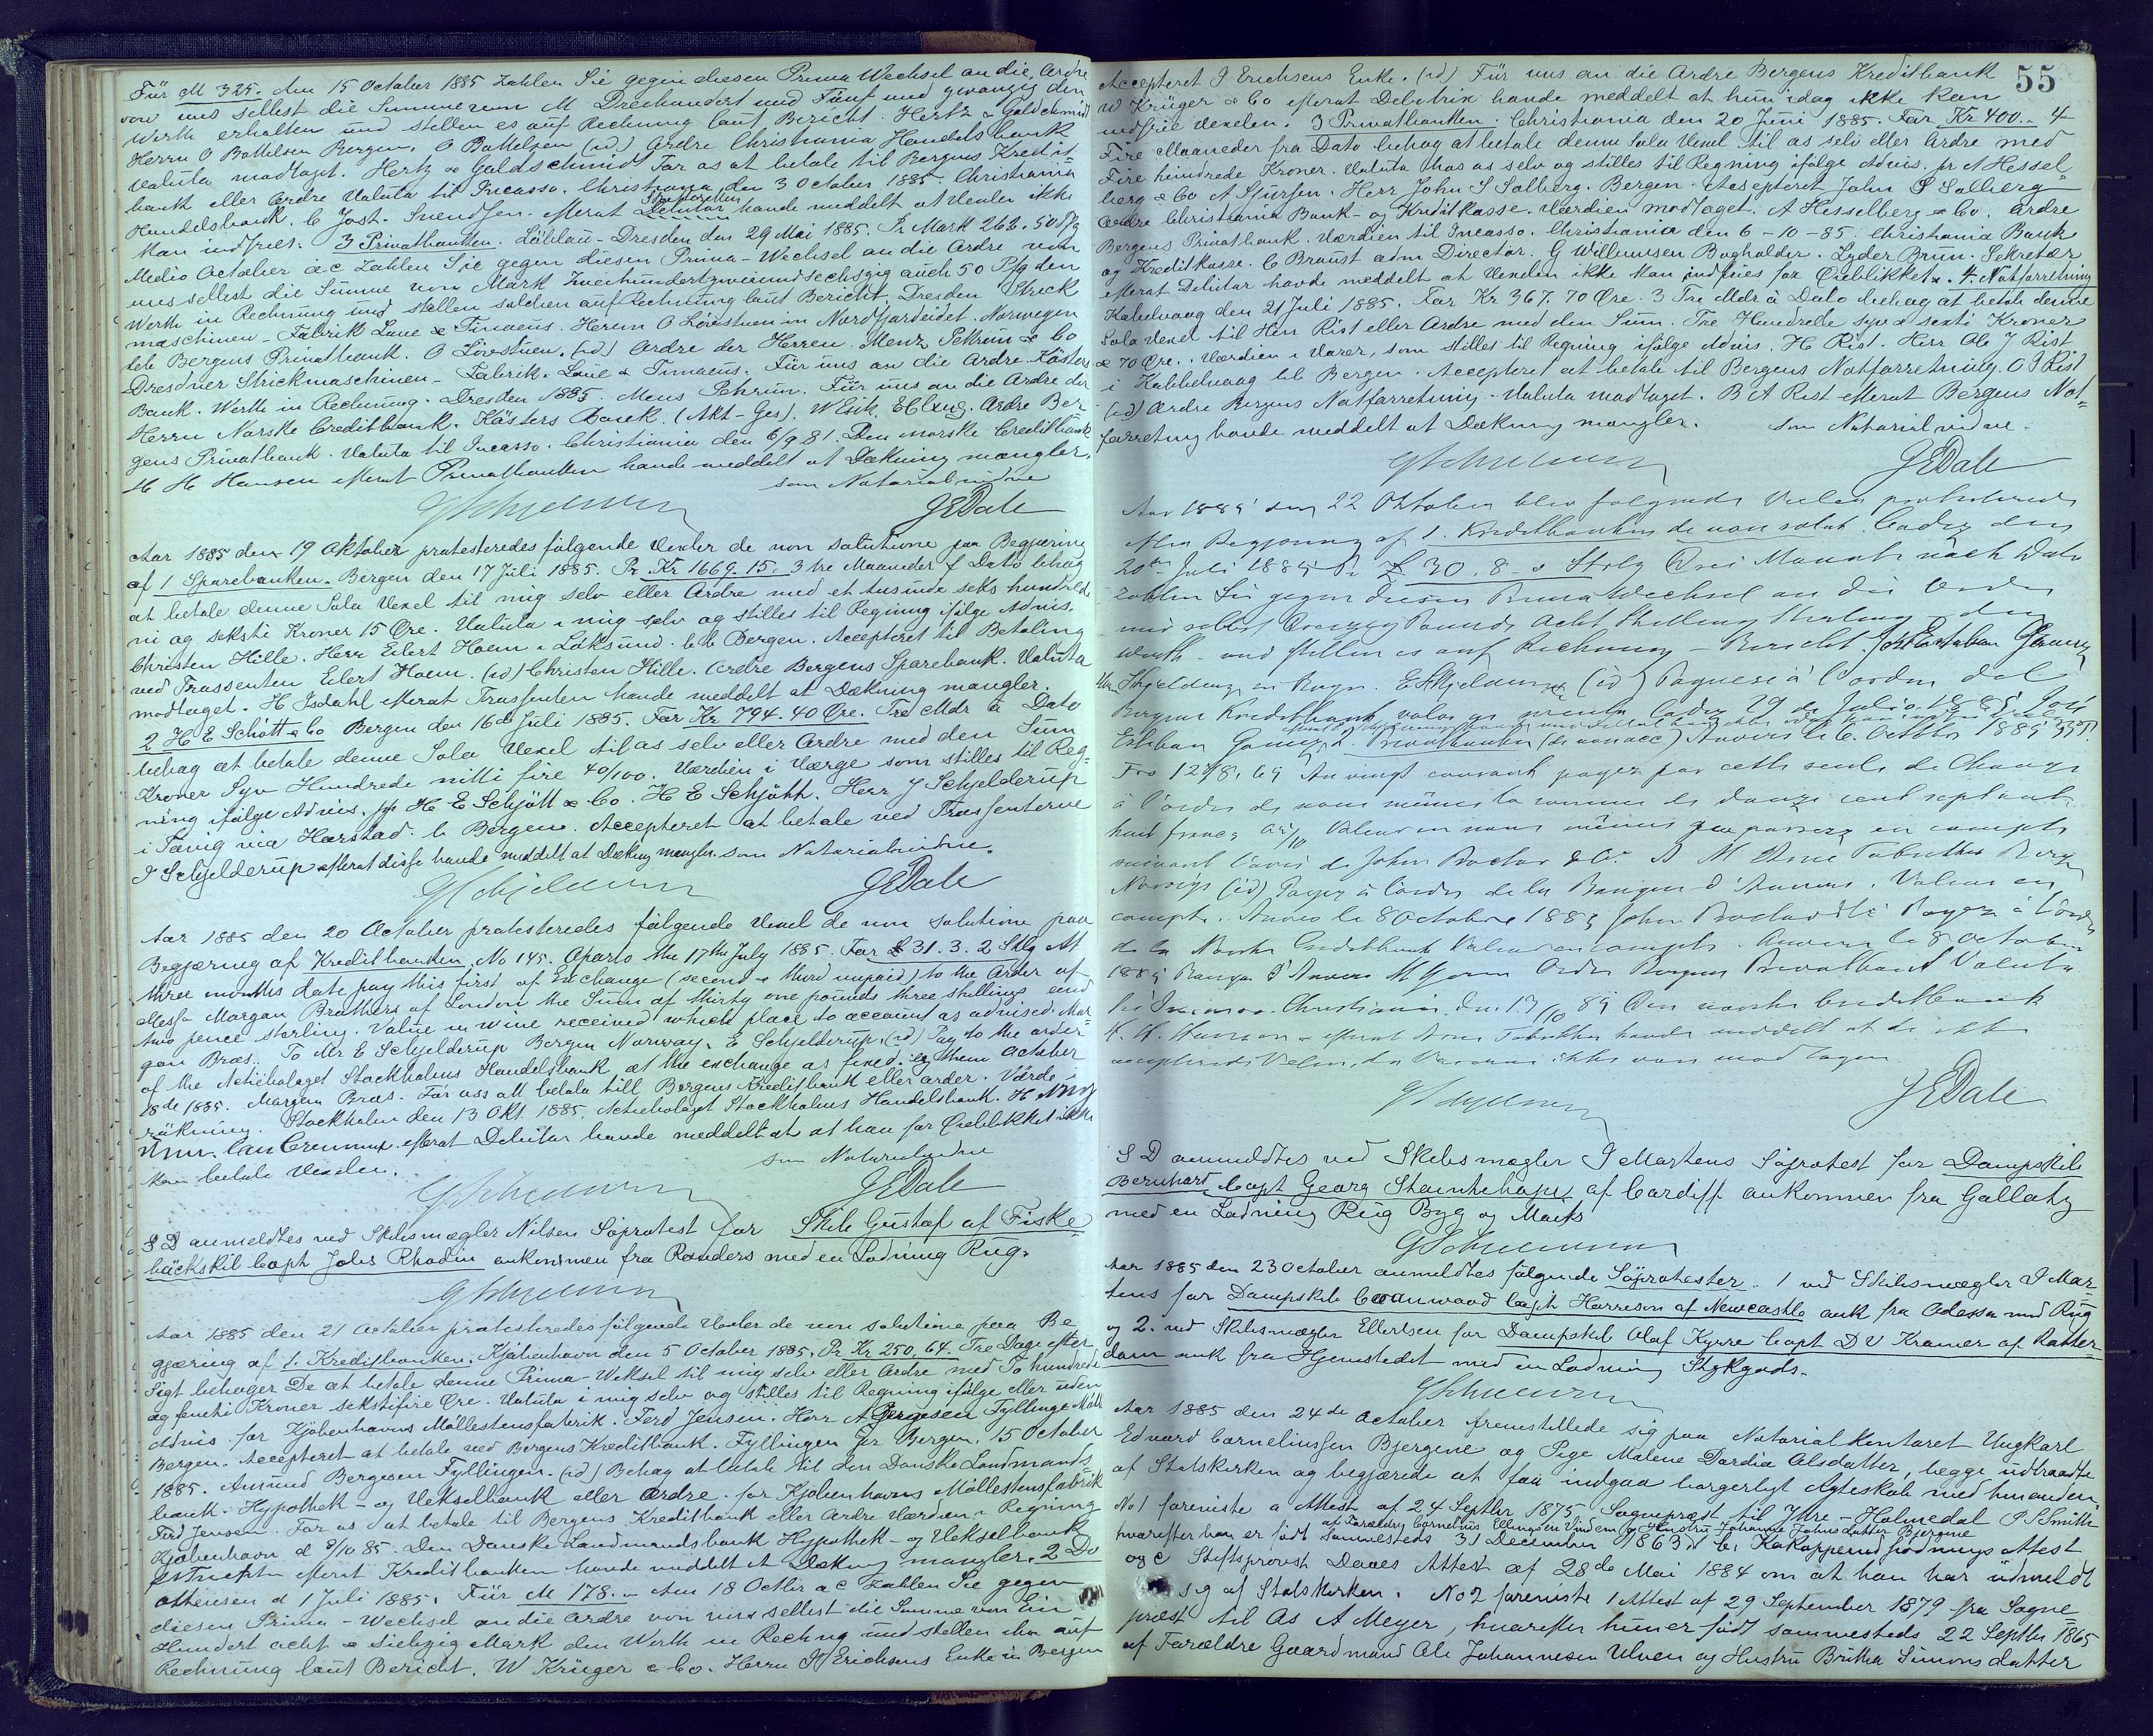 Für M 325. Am 15 October 1885 Zahlen Sie gegen diesen Prima Wechsel an die Ordre
von uns selbst die Summe von M Dreihundert und Fünf und zwanzig den
Werth erhalten und stellen es auf Rechnung laut Bericht. Hertz & Goldschmidt
Herrn O Bottelsen Bergen. O Bottelsen (id) Ordre Christiania Handelsbank
Valuta modtaget. Hertz & Goldschmid For os at betale til Bergens Kredit-
bank eller Ordre Valuta til Incasso. Christiania den 3 October 1885. Christiania
Handelsbank. C Jost. Svendsen. efterat Debitor havde meddelt at Vexler ikke
kan indfries. 3 Privatbanken. Löbtau-Dresden den 29 Mai 1885. Pr Mark 262. 50 Pfg
Medio October a.c Zahlen Sie gegen diesen Prima-Wechsel an die Ordre von
uns selbst die Summe von Mark Zweihundertzweiundsechszig auch 50 Pfg den
Werth in Rechnung und stellen solchen auf Rechnung laut Bericht. Dresden Strick
maschinen-Fabrik Laue & Timaeus. Herrn O Lövstuen in Nordfjordeidet. Norwegen
Bergens Privatbank. O Lövstuen. (id) Ordre der Herren Menz Pekrun & Co
Dresdner Strickmaschinen-Fabrik. Laue & Timaeus. Für uns an die Ordre
Bank. Werth in Rechnung. Dresden 1885. Menz Pekrun. Für uns an die Ordre der
Herrn Norske Creditbank. Bank. (Akt-Ges). Ordre Ber-
gens Privatbank. Valuta til Incasso. Christiania den 6/9 81. Den norske Creditbank
H H Hansen efterat Privatbanken havde meddelt at Dækning mangler.
som Notarialvidne
GSchjelderup JEDale
Aar 1885 den 19 Oktober protesteredes følgende Vexler de non solutione paa Begjæring
af 1 Sparebanken. Bergen den 17 Juli 1885. Pr. Kr 1669. 15. 3 tre Maaneder f Dato behag
at betale denne Sola Vexel til mig selv eller Ordre med et tusinde seks hundrede
ni og seksti Kroner 15 Øre. Valuta i mig selv og stilles til Regning ifølge Advis.
Christen Hille. Herr Eilert Hoem i Löksund. Bergen. Accepteret til Betaling
ved Trassenten Eilert Hoem. (id) Christen Hille. Ordre Bergens Sparebank. Valuta
modtaget. H Isdahl efterat Trassenten havde meddelt at Dækning mangler.
2 H E Schøtt & Co Bergen den 16de Juli 1885. For Kr 794. 40 Øre. Tre Mdr a Dato
behag at betale denne Sola Vexel til os selv eller Ordre med den Sum
Kroner Syv Hundrede nitti fire 40/100. Værdien i Værge som stilles til Reg-
ning ifølge Advis. pp H E Schjött & Co. H E Schjött. Herr J Schjelderup
i Tovig via Harstad. Bergen. Accepteret at betale ved Trassenterne
J Schjelderup efterat disse havde meddelt at Dækng mangler. som Notarialvidne.
GSchjelderup JEDale
Aar 1885 den 20 October protesteredes følgende Vexel de non solutione paa
Begjæring af Kreditbanken. No 145. Oporto the 17th July 1885. For £ 31. 3. 2 Stlg At
three months date pay this first of Exchange (second & third unpaid) to the Order of
Messr Morgan Brothers of London the Sum of thirty one pounds three shillings and
two pence sterling. Value in wine received which place to account as advised. Mor-
gan Bros. To Mr E Schjelderup Bergen Norway. E Schjelderup. (id) Pay to the order
of the Actiebolaget Stockholms Handelsbank, at the exchange as fixed by them October
8de 1885. Morgan Bros. För oss att betala till Bergens Kreditbank eller order. Värde i
räkning. Stockholm den 13 Okt. 1885. Actiebolaget Stockholms Handelsbank.
efterat Debitor havde meddelt at han for Øieblikket ikke
kan betale Vexelen. som Notarialvidne
GSchjelderup JEDale
S D anmeldtes ved Skibsmægler Nilsen Søprotest for Skib Gustaf af Fiske-
bäckskil Capt Johs Rhodin ankommen fra Randers med en Ladning Rug.
GSchjelderup
Aar 1885 den 21 October protesteredes følgende Vexler de non solutione paa Be-
gjæring af 1. Kreditbanken. Kjøbenhavn den 5 October 1885. Pr Kr 250,64. Tre Dage efter
Sigt behager De at betale denne Prima-Veksel til mig selv eller Ordre med To hundrede
og femti Kroner sekstifire Øre. Valuta i mig selv og stilles til Regning ifølge eller uden
Advis for Kjøbenhavns Möllestensfabrik. Ferd Jensen. Herr A Bergesen Fyllinge
Bergen. Accepteret at betale ved Bergens Kreditbank. Fyllingen pr Bergen. 15 October
1885. Amund Bergesen Fyllingen. (id) Behag at betale til den Danske Landmands-
bank. Hypothek- og Vekselbank eller Ordre. for Kjøbenhavns Möllestensfabrik
Ferd Jensen. For os at betale til Bergens Kreditbank eller Ordre Værdien i Regning
Kjøbenhavn d 9/10 85. Den Danske Landmandsbank Hypothek- og Vekselbank
efterat Kreditbanken havde meddelt at Dækning mangler. 2 Do
Ottensen d 1 Juli 1885. Für M 178.- Am 18 Octbr a c zahlen Sie gegen
diesen Prima-Wechsel an die Ordre von uns selbst die Summe von Ein
Hundert acht & siebzig Mark den Werth in Rechng und stellen ihn auf
Rechnung laut Bericht. W Krüger & Co. Herrn J Erichsens Enke in Bergen
55
Accepteret J Erichsens Enke. (id) Für uns an die Ordre Bergens Kreditbank
W Krüger & Co efterat Debitrix havde meddelt at hun idag ikke kan
indfrie Vexelen. 3 Privatbanken. Christiania den 20 Juni 1885. For Kr 400.- 4
Fire Maaneder fra Dato behag at betale denne Sola Vexel til os selv eller Ordre med
Fire hundrede Kroner. Valuta hos os selv og stilles til Regning ifølge Advis. pr A Hessel-
berg & Co A Sjursen. Herr John S Solberg. Bergen. Accepteret John S Solberg
Ordre Christiania Bank- og Kreditkasse. Værdien modtaget. A Hesselberg & Co. Ordre
Bergens Privatbank. Værdien til Incasso. Christiania den 6-10-85. Christiania Bank
og Kreditkasse. C Braust adm Director. G Willumsen Bogholder. Lyder Brun. Sekretær
efterat Debitor havde meddelt at Vexelen ikke kan indfries for Øieblikket. 4. Notforretning
Kabelvaag den 21 Juli 1885. For Kr 367. 70 Øre. 3 Tre Mdr a Dato behag at betale denne
Sola Vexel til Herr Rist eller Ordre med den Sum. Tre Hundrede syv & sexti Kroner
& 70 Øre. Værdien i Varer, som stilles til Regning ifølge Advis. H Rist. Herr Ole J Rist
i Kabbelvaag Bergen. Accepteret at betale til Bergens Notforretning. O J Rist
(id) Ordre Bergens Notforretning. Valuta modtaget. B A Rist efterat Bergens Not-
forretning havde meddelt at Dækning mangler. som Notarialvidne.
GSchjelderup JEDale
Aar 1885 den 22 Oktober blev følgende Vexler protesterede
efter Begjæring af 1. Kreditbanken de non solut. Cadiz den
20de Juli 1885 Pr £ 30. 8-s Strlg Drei Monate nach Dato
Zahlen Sie gegen diesen Prima Wechsel an die Ordre
mir selbst Dreizig Pounds Acht Shelling Sterling den
Werth und stellen es auf Rechnung - Bericht. José Esteban Gomez
(id) Paguese á l'orden del
Bergens Kreditbank valor en cuenta Cadiz 29 de Julio 1885. José
Esteban Gomez. 2. Privatbanken (de non acc) Anvers le 6. Octbr 1885
Frs 1278.65 An vingt courant payez par cette seule de Change
à l'ordre de nous mêmes la somme de douze cent septante
huit francs Valeur en nous mêmes que passerez en compte
suivant l'avis de John Bector & Co. A M Arne Tobrothes Bergen
Norvège (id) Payez à l'ordre de la Banque d'Anvers. Valeur en
compte. Anvers le 8 Octobre 1885 John Bector & Co Payez à l'ordre
de la Norske Creditbank Valeur en compte. Anvers le 8 Octobre
1885 Banque d'Anvers Ordre Bergens Privatbank Valuta
til Incasso. Christiania den 13/10 85 Den norske Creditbank
H. H. Hansen - efterat Arne havde meddelt at de ikke
accepterede Vexelen, da Varerne ikke vare modtagne
GSchjelderup JEDale
S D anmeldtes ved Skibsmægler J Martens Søprotest for Dampskib
Bernhard, Capt Georg af Cardiff ankommen fra Gallatz
med en Ladning Rug Byg og Mais
GSchjelderup
Aar 1885 den 23 October anmeldtes følgende Søprotester. 1 ved Skibsmægler J Mar-
tens for Dampskib Coanwood Capt Harrison af Newcastle ank fra Odessa med Rug
og 2. ved Skibsmægler Ellertsen for Dampskib Olaf Kyrre Capt D V Kramer af Rotter-
dam ank fra Hjemstedet med en Ladning Stykgods.
GSchjelderup
Aar 1885 den 24de October fremstillede sig paa Notarialkontoret Ungkarl
Edvard Corneliussen Bjergene og Pige Malene Dordia Olsdatter, begge udtraadte
af Statskirken og begjærede at faa indgaa borgerligt Ægteskab med hinanden.
No 1 foreviste a Attest af 24 Septbr 1875 Sogneprest til Ytre-Holmedal P S Smith
af Forældre Cornelius Ellingsen og Hustru Johanne Johnsdatter Bjergene
hvorefter han er født sammesteds 31 December 1863 & b. Kokoppeindpodnings attest
og c Stiftsprovst Daaes Attest af 28de Mai 1884 om at han har udmeldt
sig af Statskirken. No 2 foreviste 1 Attest af 29 September 1879 fra Sogne-
præst til Os A Meyer, hvorefter hun er født sammesteds 22 Septbr 1865
af Forældre Gaardmand Ole Johannesen Ulven og Hustru Britha Simonsdatter